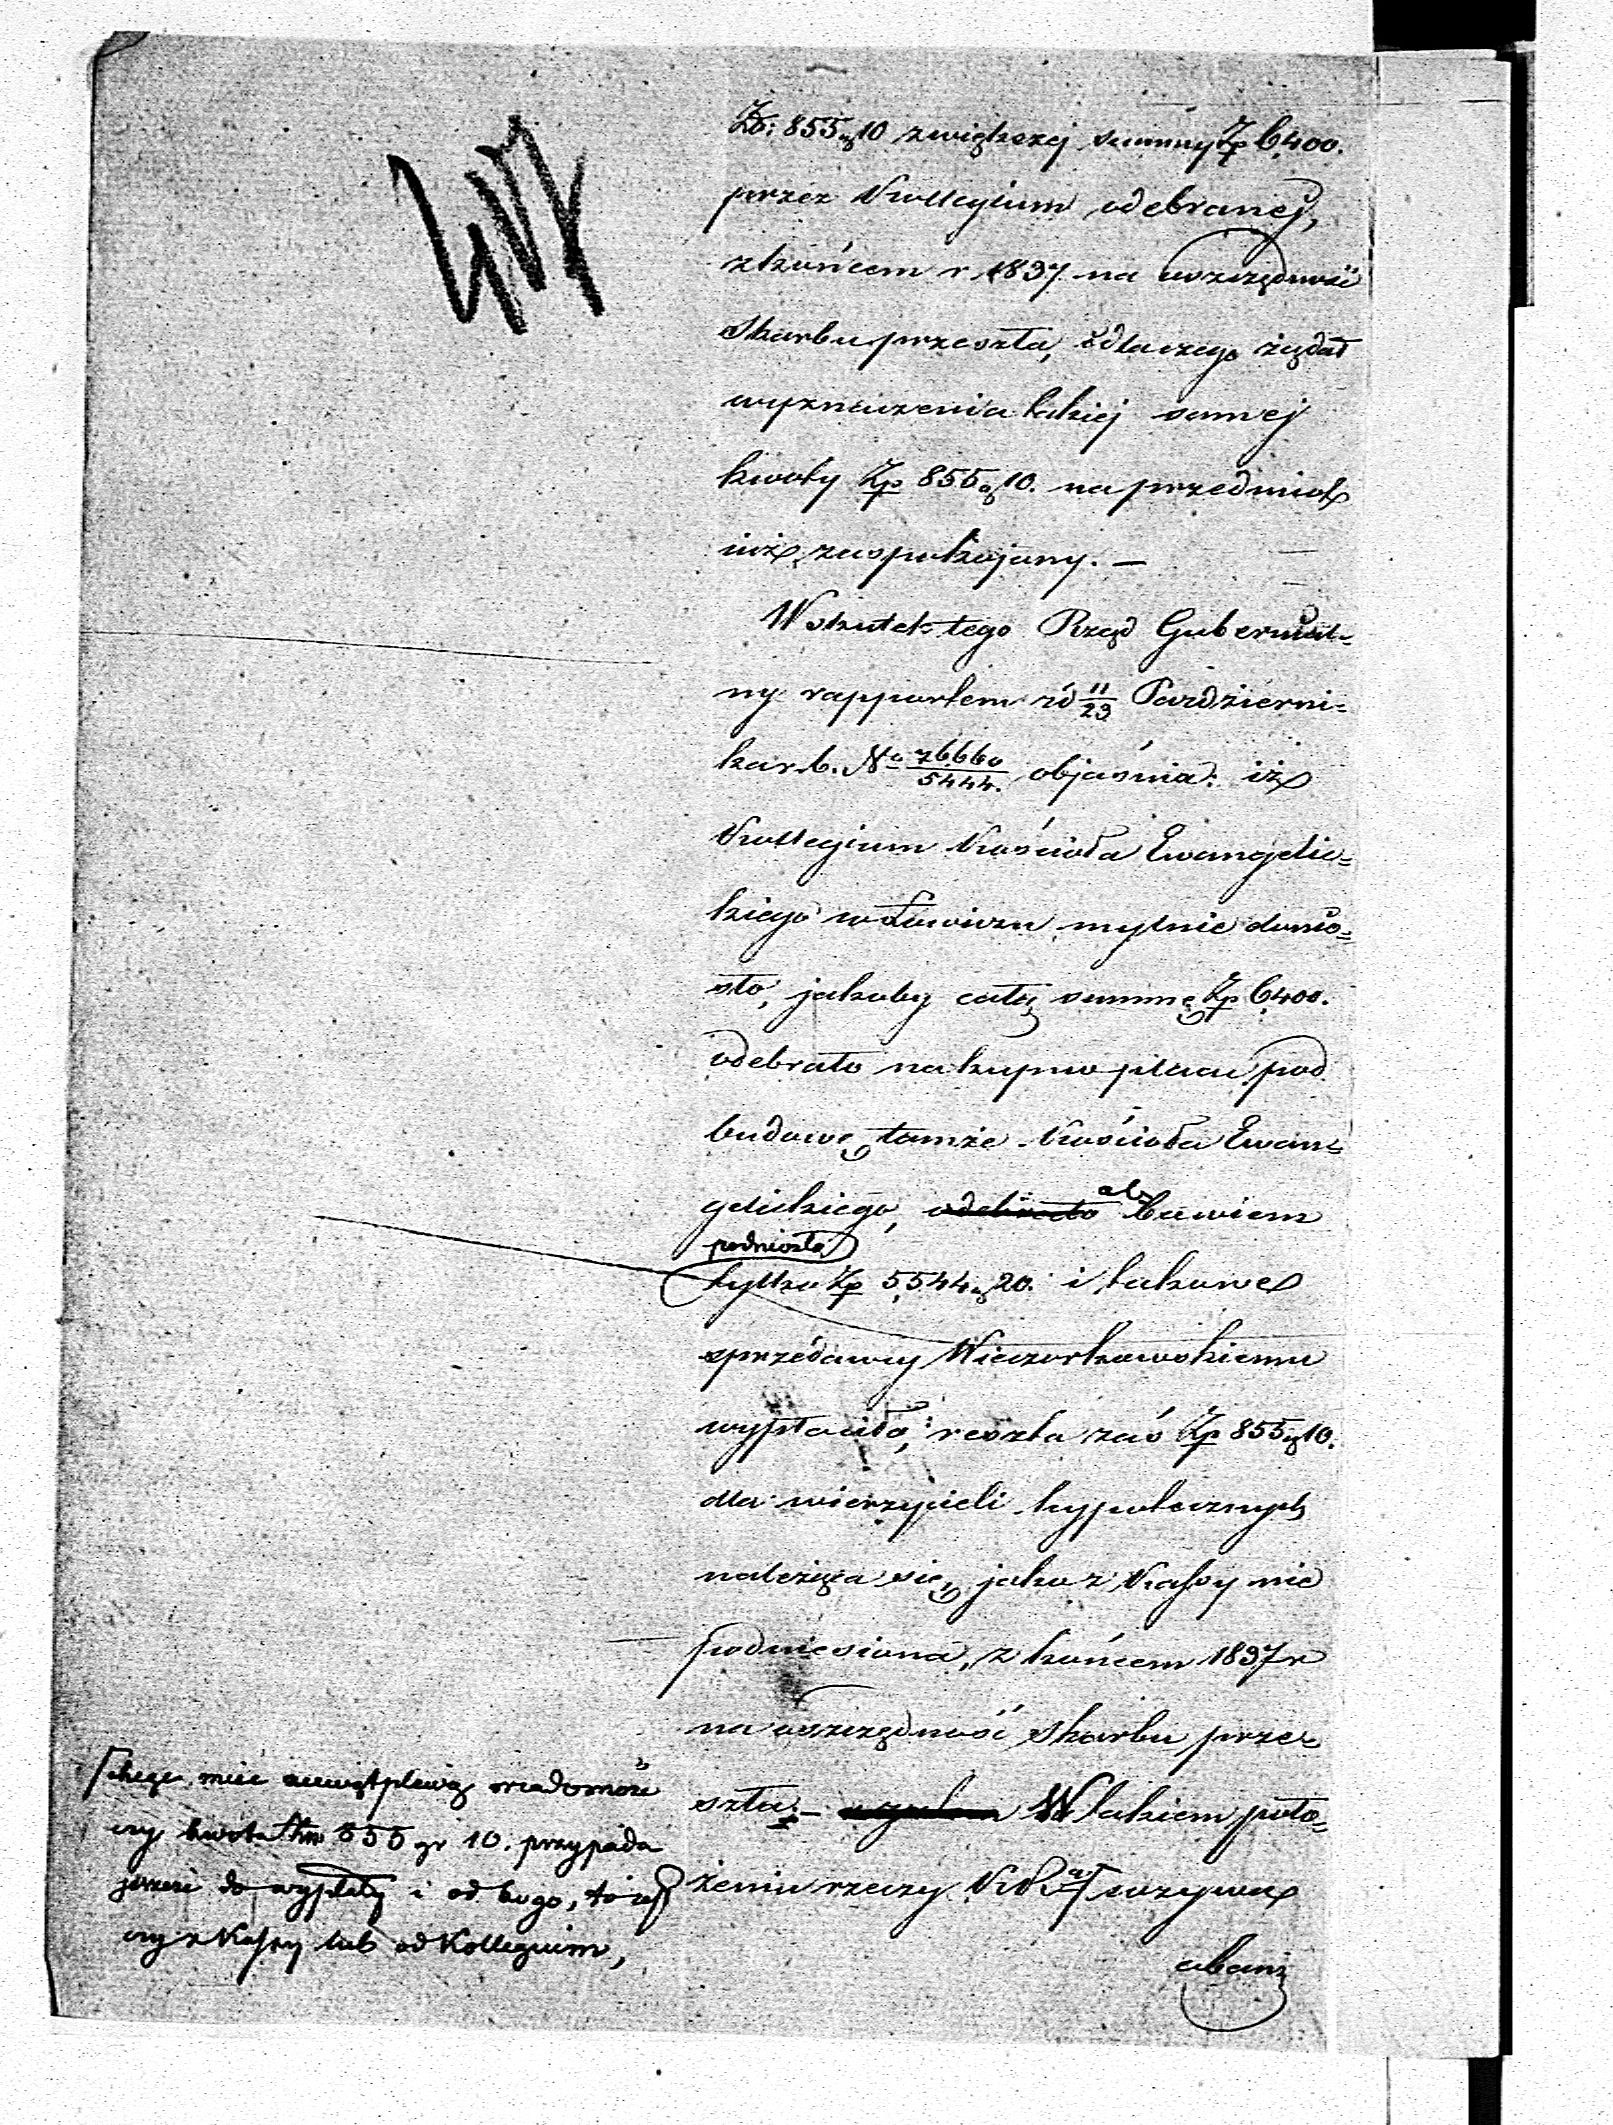 Zł: 855 g 10 z większej summy Zp 6,400.
przez Kollegium odebranej,
z końcem r. 1837 na oszczędność
Skarbu przeszła, i dla czego żądał
wyznaczenia takiej samej
kwoty Zp 855 g 10. na przedmiot
iuż zaspokojony. —
W skutek tego Rząd Gubernial-
ny rapportem z d 11/23 Pazdzierni-
ka r. b. No 76660/5444. objaśnia: iż
Kollegium Kościoła Ewangelic-
kiego w Łowiczu mylnie donio-
sło, jakoby całą summę Zp 6,400.
odebrało na kupno placu pod
budowę tamże Kościoła Ewan-
gelickiego, odebrało albowiem
podniosło
tylko Zp 5,544 g 20. i takowe
sprzedawcy Wieczorkowskiemu
wypłaciło; reszta zaś Zp 855 g 10.
dla wierzycieli hypotecznych
należąca się, jako z Kassy nie
podniesiona, z końcem 1837 r
na oszczędność Skarbu prze-
szła. — W takiem poło-
żeniu rzeczy
abani
chcąc mieć niewątpliwą wiadomość
czy kwota 855 gr 10. przypada
jeszcze do wypłaty i od kogo, to jest
czy z Kassy lub od Kollegium,